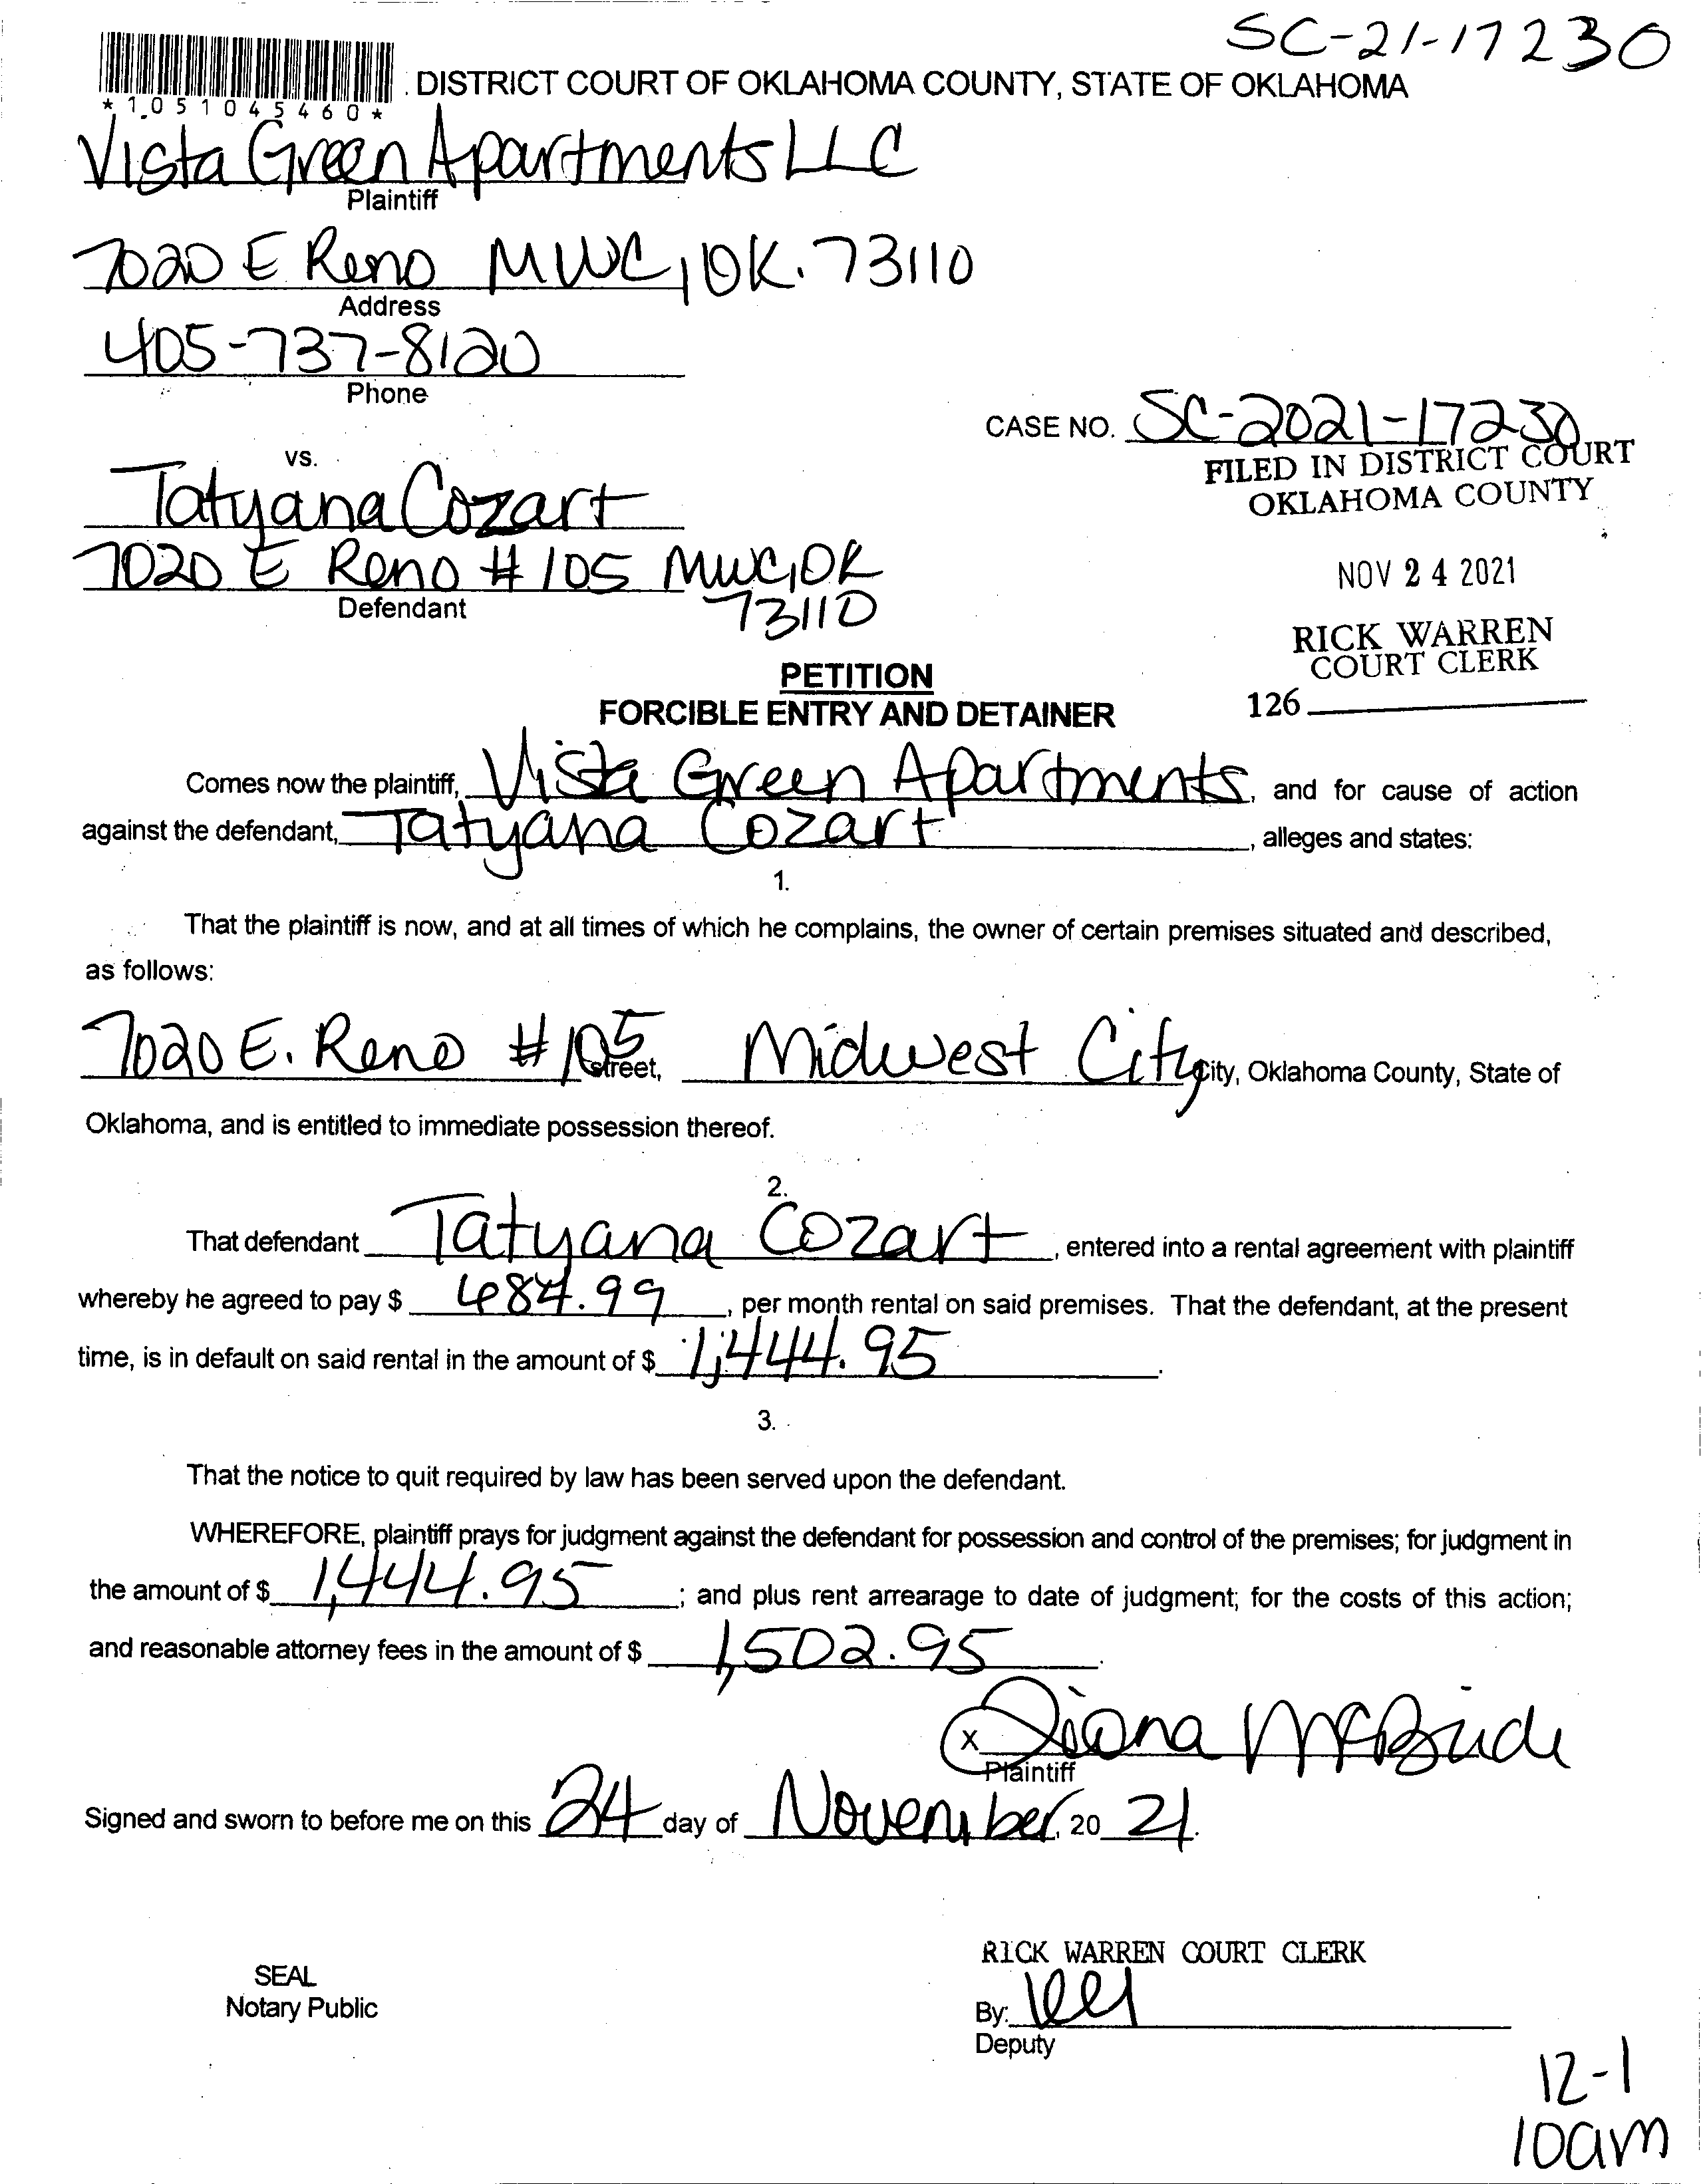 SC-21-17230
*1051045460*
DISTRICT COURT OF OKLAHOMA COUNTY, STATE OF OKLAHOMA
Vista Green Apartments LLC
Plaintiff
7020 E Reno MWC, OK. 73110
Address
405-737-8120
Phone
CASE NO. SC-2021-17230
vs.
FILED IN DISTRICT COURT
OKLAHOMA COUNTY
Tatyana Cozart
7020 E Reno #105 MWC, OK
73110
Defendant
NOV 24 2021
RICK WARREN
COURT CLERK
126
PETITION
FORCIBLE ENTRY AND DETAINER
Comes now the plaintiff, Vista Green Apartments, and for cause of action
against the defendant, Tatyana Cozart, alleges and states:
1.
That the plaintiff is now, and at all times of which he complains, the owner of certain premises situated and described,
as follows:
7020 E. Reno #105 street, Midwest City City, Oklahoma County, State of
Oklahoma, and is entitled to immediate possession thereof.
2.
That defendant Tatyana Cozart, entered into a rental agreement with plaintiff
whereby he agreed to pay $ 684.99, per month rental on said premises. That the defendant, at the present
time, is in default on said rental in the amount of $ 1,444.95.
3.
That the notice to quit required by law has been served upon the defendant.
WHEREFORE, plaintiff prays for judgment against the defendant for possession and control of the premises; for judgment in
the amount of $ 1,444.95; and plus rent arrearage to date of judgment; for the costs of this action;
and reasonable attorney fees in the amount of $ 1,502.95.
X Diana McBride
Plaintiff
Signed and sworn to before me on this 24 day of November, 20 21.
RICK WARREN COURT CLERK
SEAL
Notary Public
By:
Deputy
12-1
10am